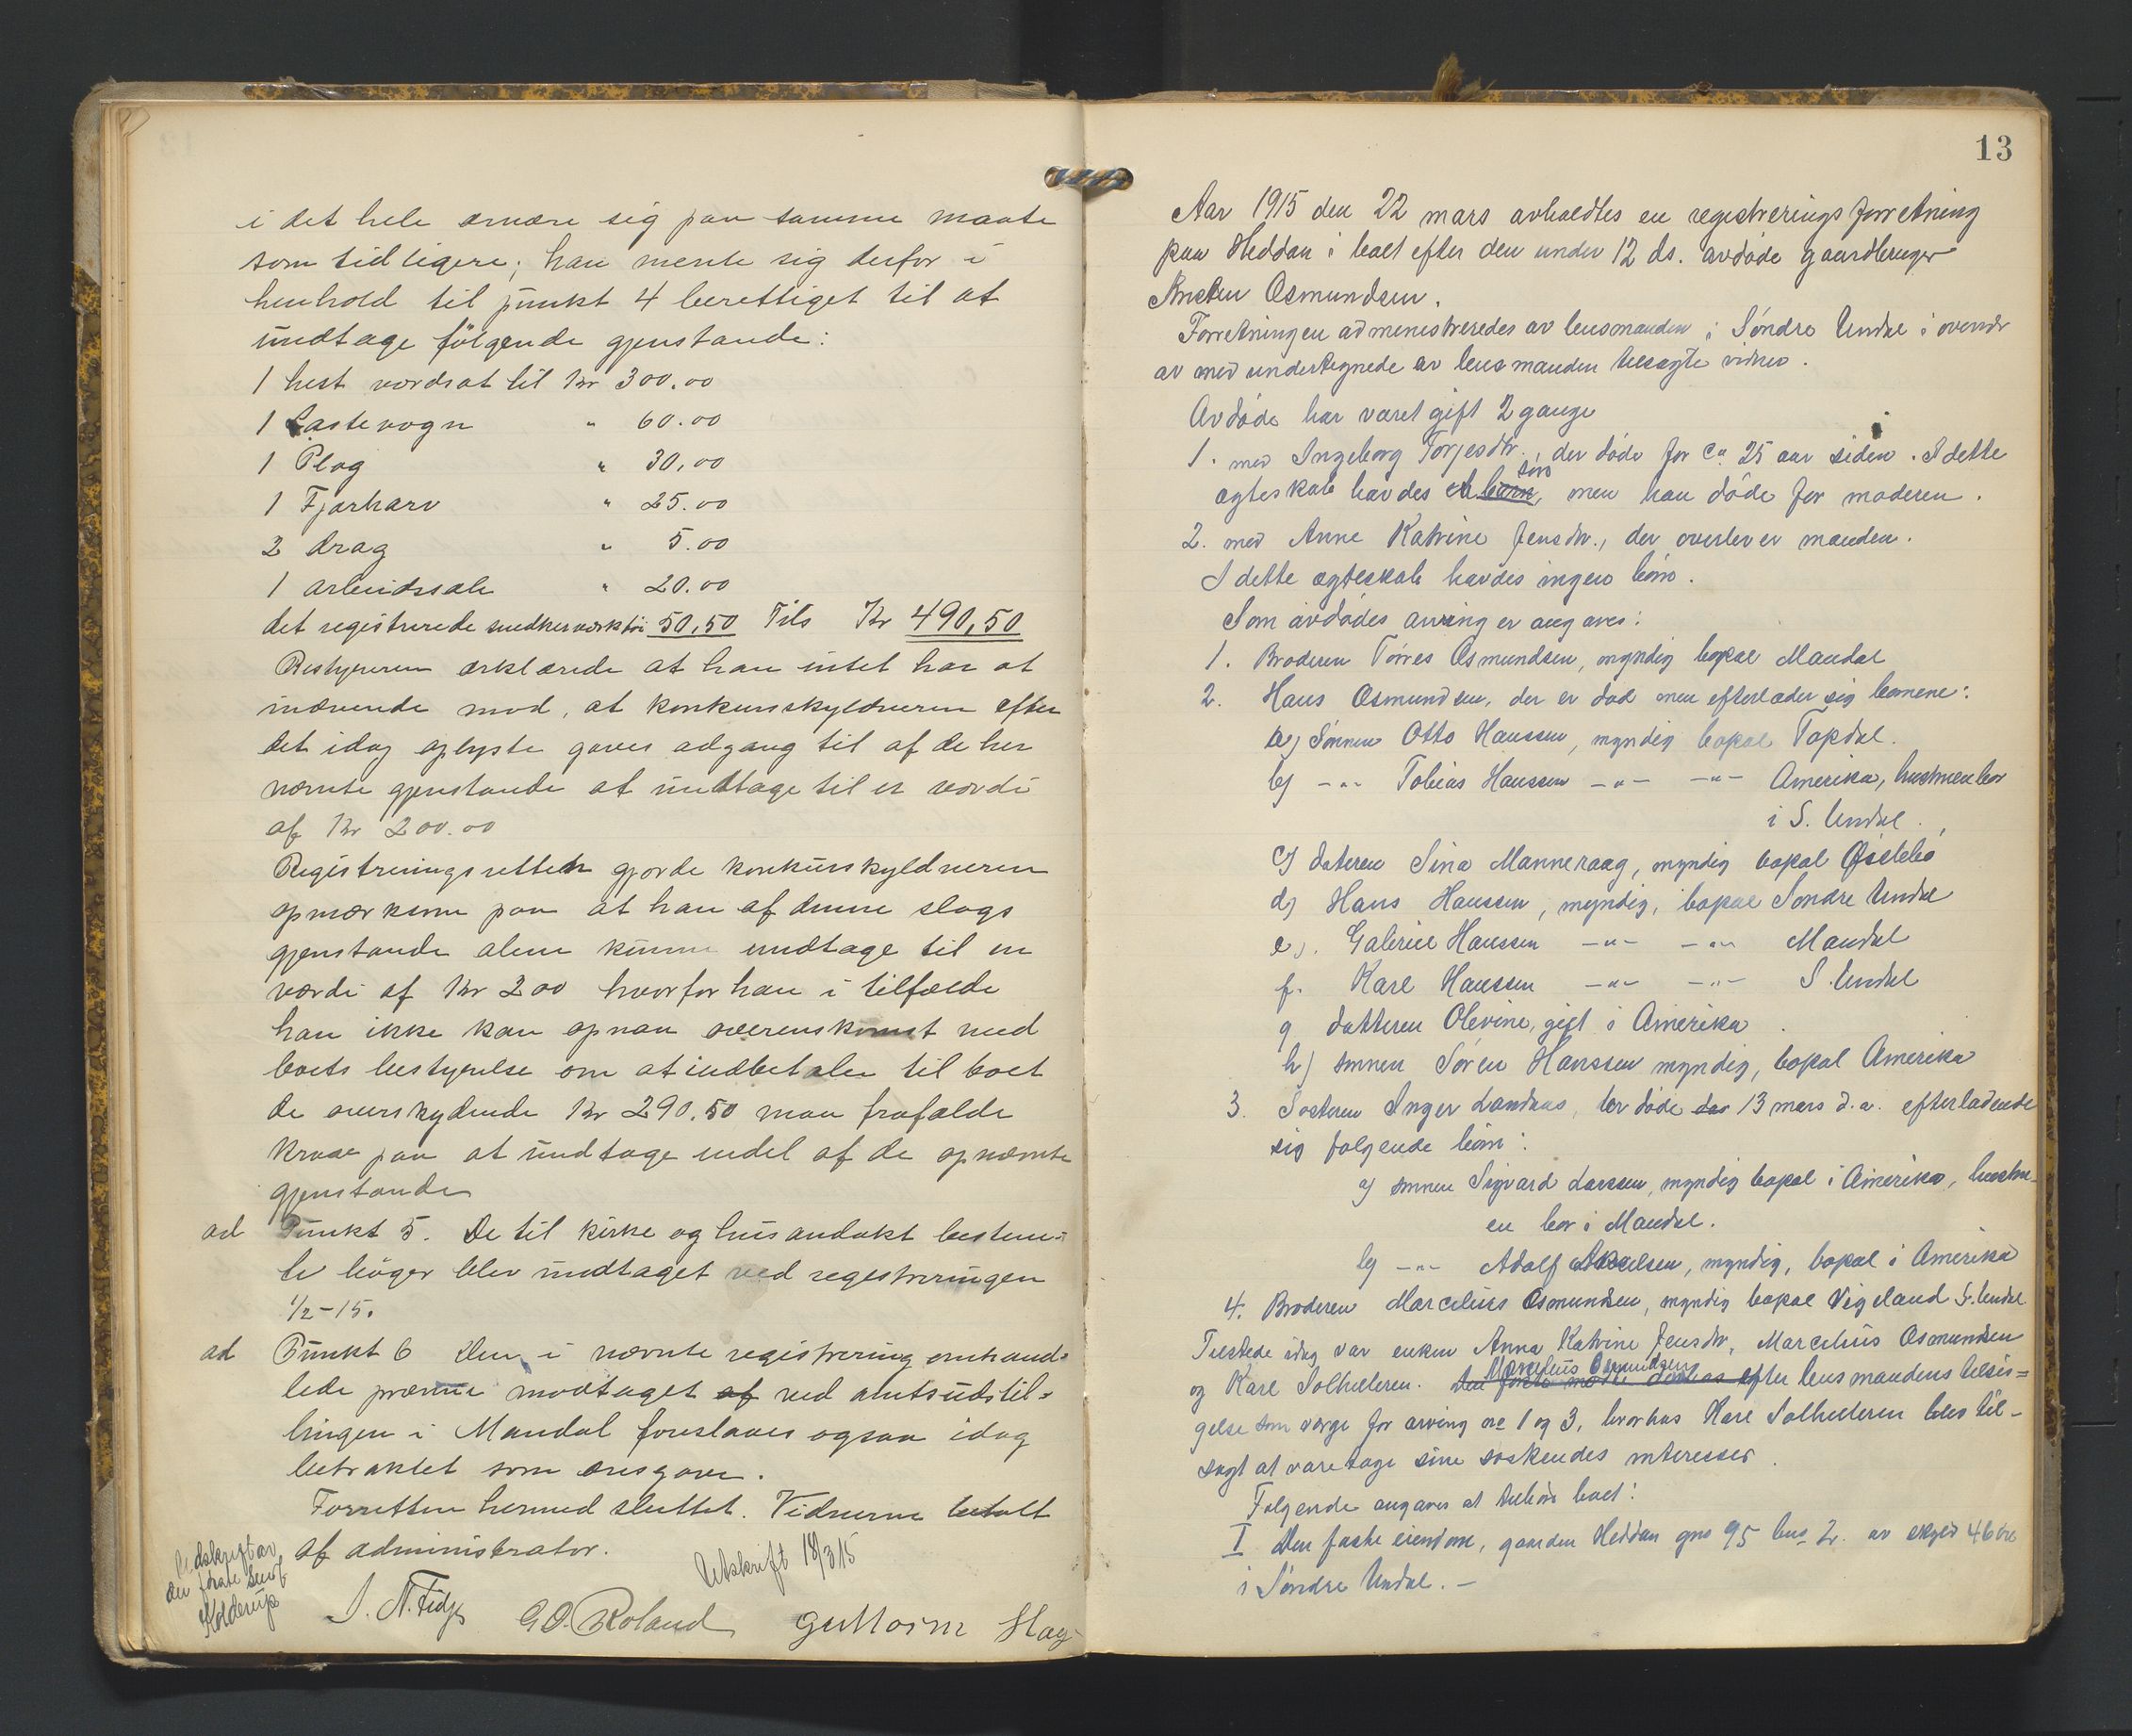 i det hele ernære sig paa samme maate
som tidligere; han mente sig derfor i
henhold til punkt 4 berettiget til at
undtage følgende gjenstande:
1 hest verdsat til Kr 300.00
1 Lastevogn " 60.00
1 Plog " 30,00
1 Fjærharv " 25.00
2 drag " 5.00
1 arbeidssale " 20.00
det registrerede snedkerverktøi 50,50 Tils Kr 490,50
Bestyreren erklærede at han intet har at
indvende mod, at konkursskyldneren efter
det idag oplyste gives adgang til af de her
nævnte gjenstande at undtage til er værdi
af Kr 200.00
Registreringsretten gjorde konkursskyldneren
opmærksom paa at han af denne slags
gjenstande alene kunne undtage til en
værdi af Kr 200 hvorfor han i tilfælde
han ikke kan opnaa overenskomst med
boets bestyrelse om at indbetale til boet
de overskydende Kr 290.50 maa frafalde
krav paa at undtage endel af de opnævnte
gjenstande
ad Punkt 5. De til kirke og husandakt bestem-
te bøger blev undtaget ved registreringen
1/2-15.
ad Punkt 6 Den i nævnte registrering omhand-
lede præmie modtaget af ved amtsudstil-
lingen i Mandal foreslaaes ogsaa idag
betraktet som æresgave.
Forretten hermed sluttet. Vidnerne betalt
af administrator.
Udskrift av
den første
Kolderup
Utskrift 18/3 15
G. O. Roland Guttorm Hag
13
Aar 1915 den 22 mars avholdtes en registreringsforretning
paa Heddan i boet efter den under 12 ds. avdøde gaardbruger
Knsten Osmundsen.
Forretningen administreredes av lensmanden i Søndre Undal i overvær
av med undertegnede av lensmanden tilsagte vidner.
Avdøde har været gift 2 gange
1. med Ingeborg Torjesdtr. der døde for ca 25 aar siden. I dette
søn
egteskab havdes et barn, men han døde før moderen.
2. med Anne Katrine Jensdtr., der overlever manden.
I dette egteskab havdes ingen børn.
Som avdødes arvinger angaves:
1. Broderen Tørres Osmundsen, myndig bopæl Mandal
2. Hans Osmundsen, der er død men efterlader sig børnene:
a) Sønnen Otto Hanssen, myndig bopæl Topdal.
b) -"- Tobias Hanssen -"- -"- Amerika, hustruen bor
i S. Undal.
c) datteren Sina Manneraag, myndig bopæl Øslebø
d) Hans Hanssen, myndig, bopæl Søndre Undal
e). Gabriel Hanssen -"- -"- Mandal
f. Karl Hanssen -"- -"- S. Undal
g datteren Olevine, gift i Amerika.
h) sønnen Søren Hanssen myndig, bopæl Amerika
3. Søsteren Inger Landaas, der døde den 13 mars d.a. efterladende
sig følgende børn:
a) sønnen Sigvard Larssen, myndig bopæl i Amerika, hustru-
en bor i Mandal.
b) -"- Adolf Axelsen, myndig, bopæl i Amerika
4. Broderen Marcelius Osmundsen, myndig bopæl Vigeland S. Undal
Tilstede idag var enken Anna Katrine Jensdtr, Marcelius Osmundsen
Marcelius Osmundsen
og Karl Solhulleren. efter lensmandens tilsi-
gelse som verge for arving no 1 og 3, hvorhos Karl Solhulleren blev til-
sagt at varetage sine søskendes interesser.
Følgende angaves at tilhøre boet:
I Den faste eiendom, gaarden Heddan gno 95 bno 2. av skyld 46 øre
i Søndre Undal. -